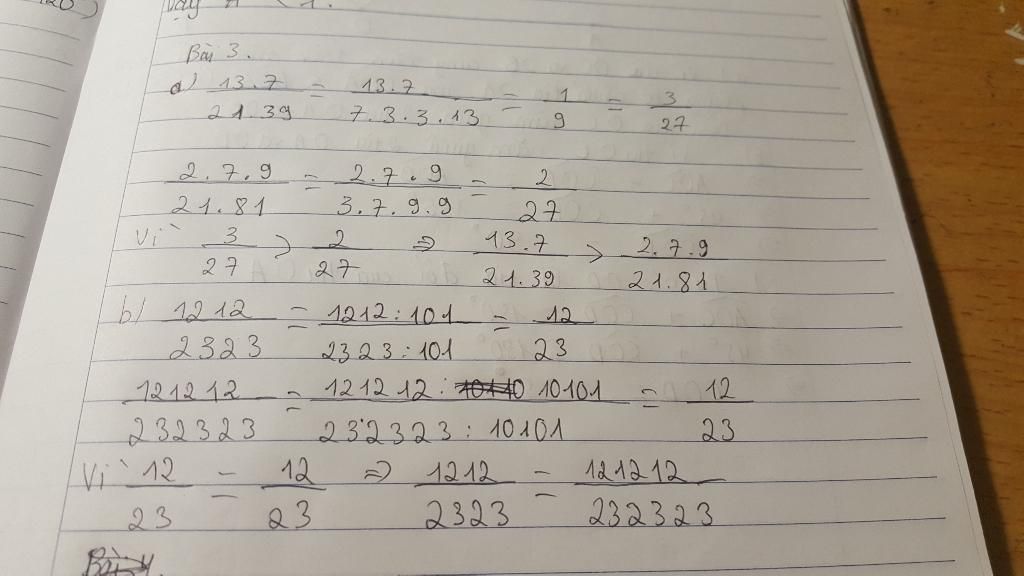 Vậy A < 1.
Bài 3.
a) 13.7/21.39 = 13.7/7.3.3.13 = 1/9 = 3/27
2.7.9/21.81 = 2.7.9/3.7.9.9 = 2/27
Vì 3/27 > 2/27 ⇒ 13.7/21.39 > 2.7.9/21.81
b) 1212/2323 = 1212:101/2323:101 = 12/23
121212/232323 = 121212:10101/232323:10101 = 12/23
Vì 12/23 = 12/23 ⇒ 1212/2323 = 121212/232323
Bài 4.